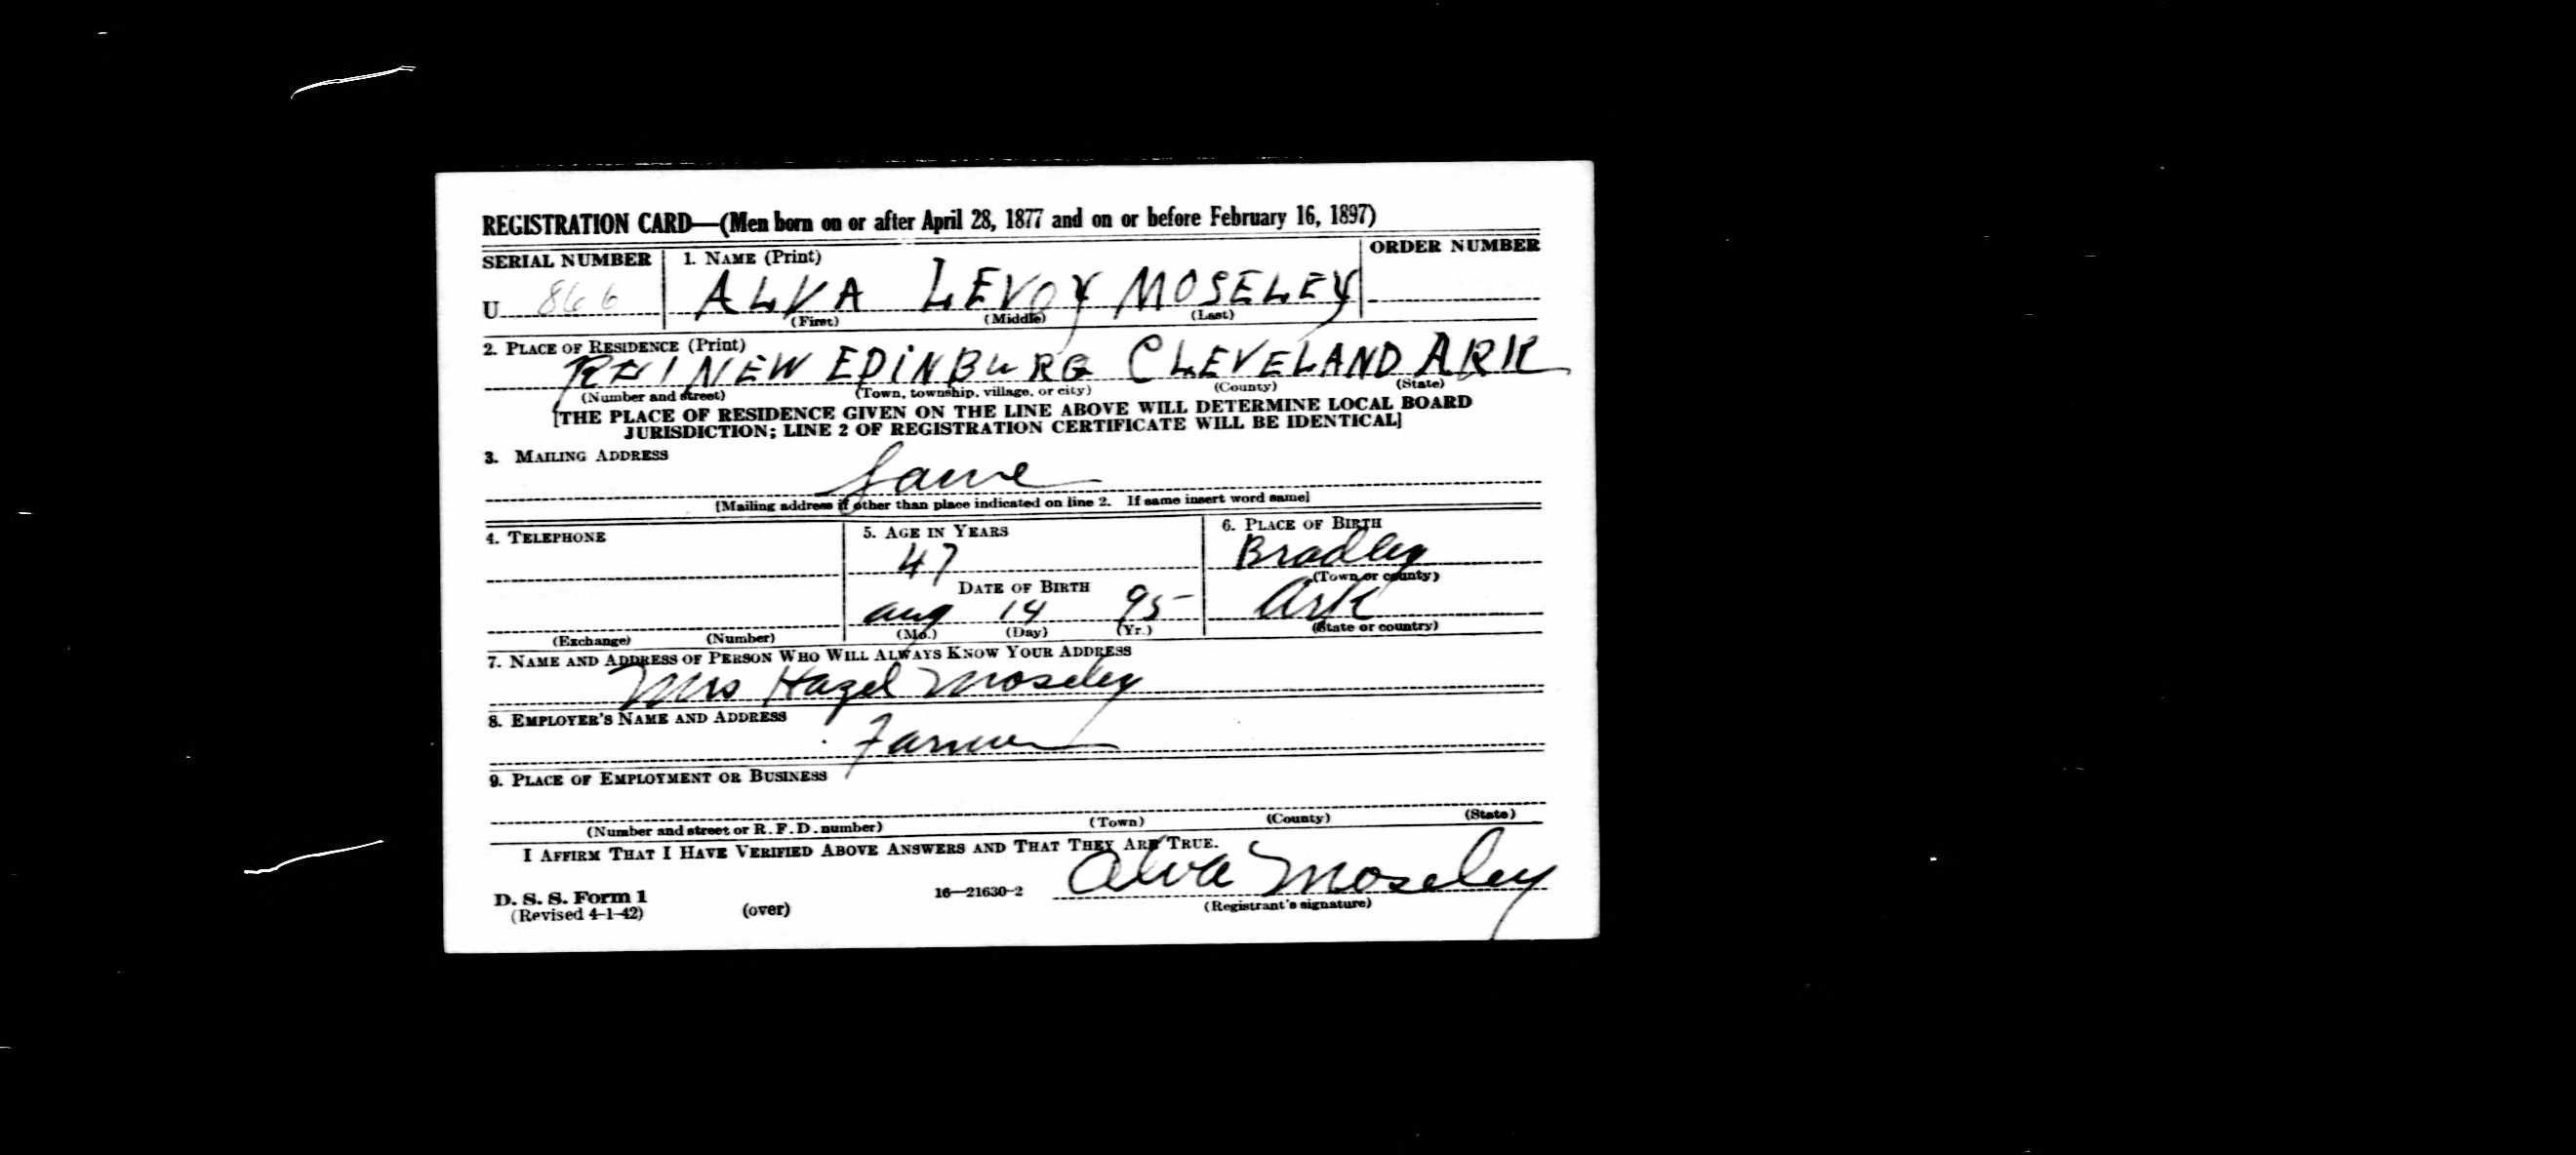 REGISTRATION CARD—(Men born on or after April 28, 1877 and on or before February 16, 1897)
SERIAL NUMBER 1. NAME (Print) ORDER NUMBER
U 866 ALVA LEVOY MOSELEY
(First) (Middle) (Last)
2. PLACE OF RESIDENCE (Print)
R#1 NEW EDINBURG CLEVELAND ARK
(Number and street) (Town, township, village, or city) (County) (State)
[THE PLACE OF RESIDENCE GIVEN ON THE LINE ABOVE WILL DETERMINE LOCAL BOARD
JURISDICTION; LINE 2 OF REGISTRATION CERTIFICATE WILL BE IDENTICAL]
3. MAILING ADDRESS
Same
[Mailing address if other than place indicated on line 2. If same insert word same]
4. TELEPHONE 5. AGE IN YEARS 6. PLACE OF BIRTH
47 Bradley
DATE OF BIRTH (Town or county)
Aug 14 95 Ark
(Exchange) (Number) (Mo.) (Day) (Yr.) (State or country)
7. NAME AND ADDRESS OF PERSON WHO WILL ALWAYS KNOW YOUR ADDRESS
Mrs Hazel Moseley
8. EMPLOYER'S NAME AND ADDRESS
Farmer
9. PLACE OF EMPLOYMENT OR BUSINESS
(Number and street or R. F. D. number) (Town) (County) (State)
I AFFIRM THAT I HAVE VERIFIED ABOVE ANSWERS AND THAT THEY ARE TRUE.
Alva Moseley
D. S. S. Form 1 16—21630-2
(Revised 4-1-42) (over) (Registrant's signature)